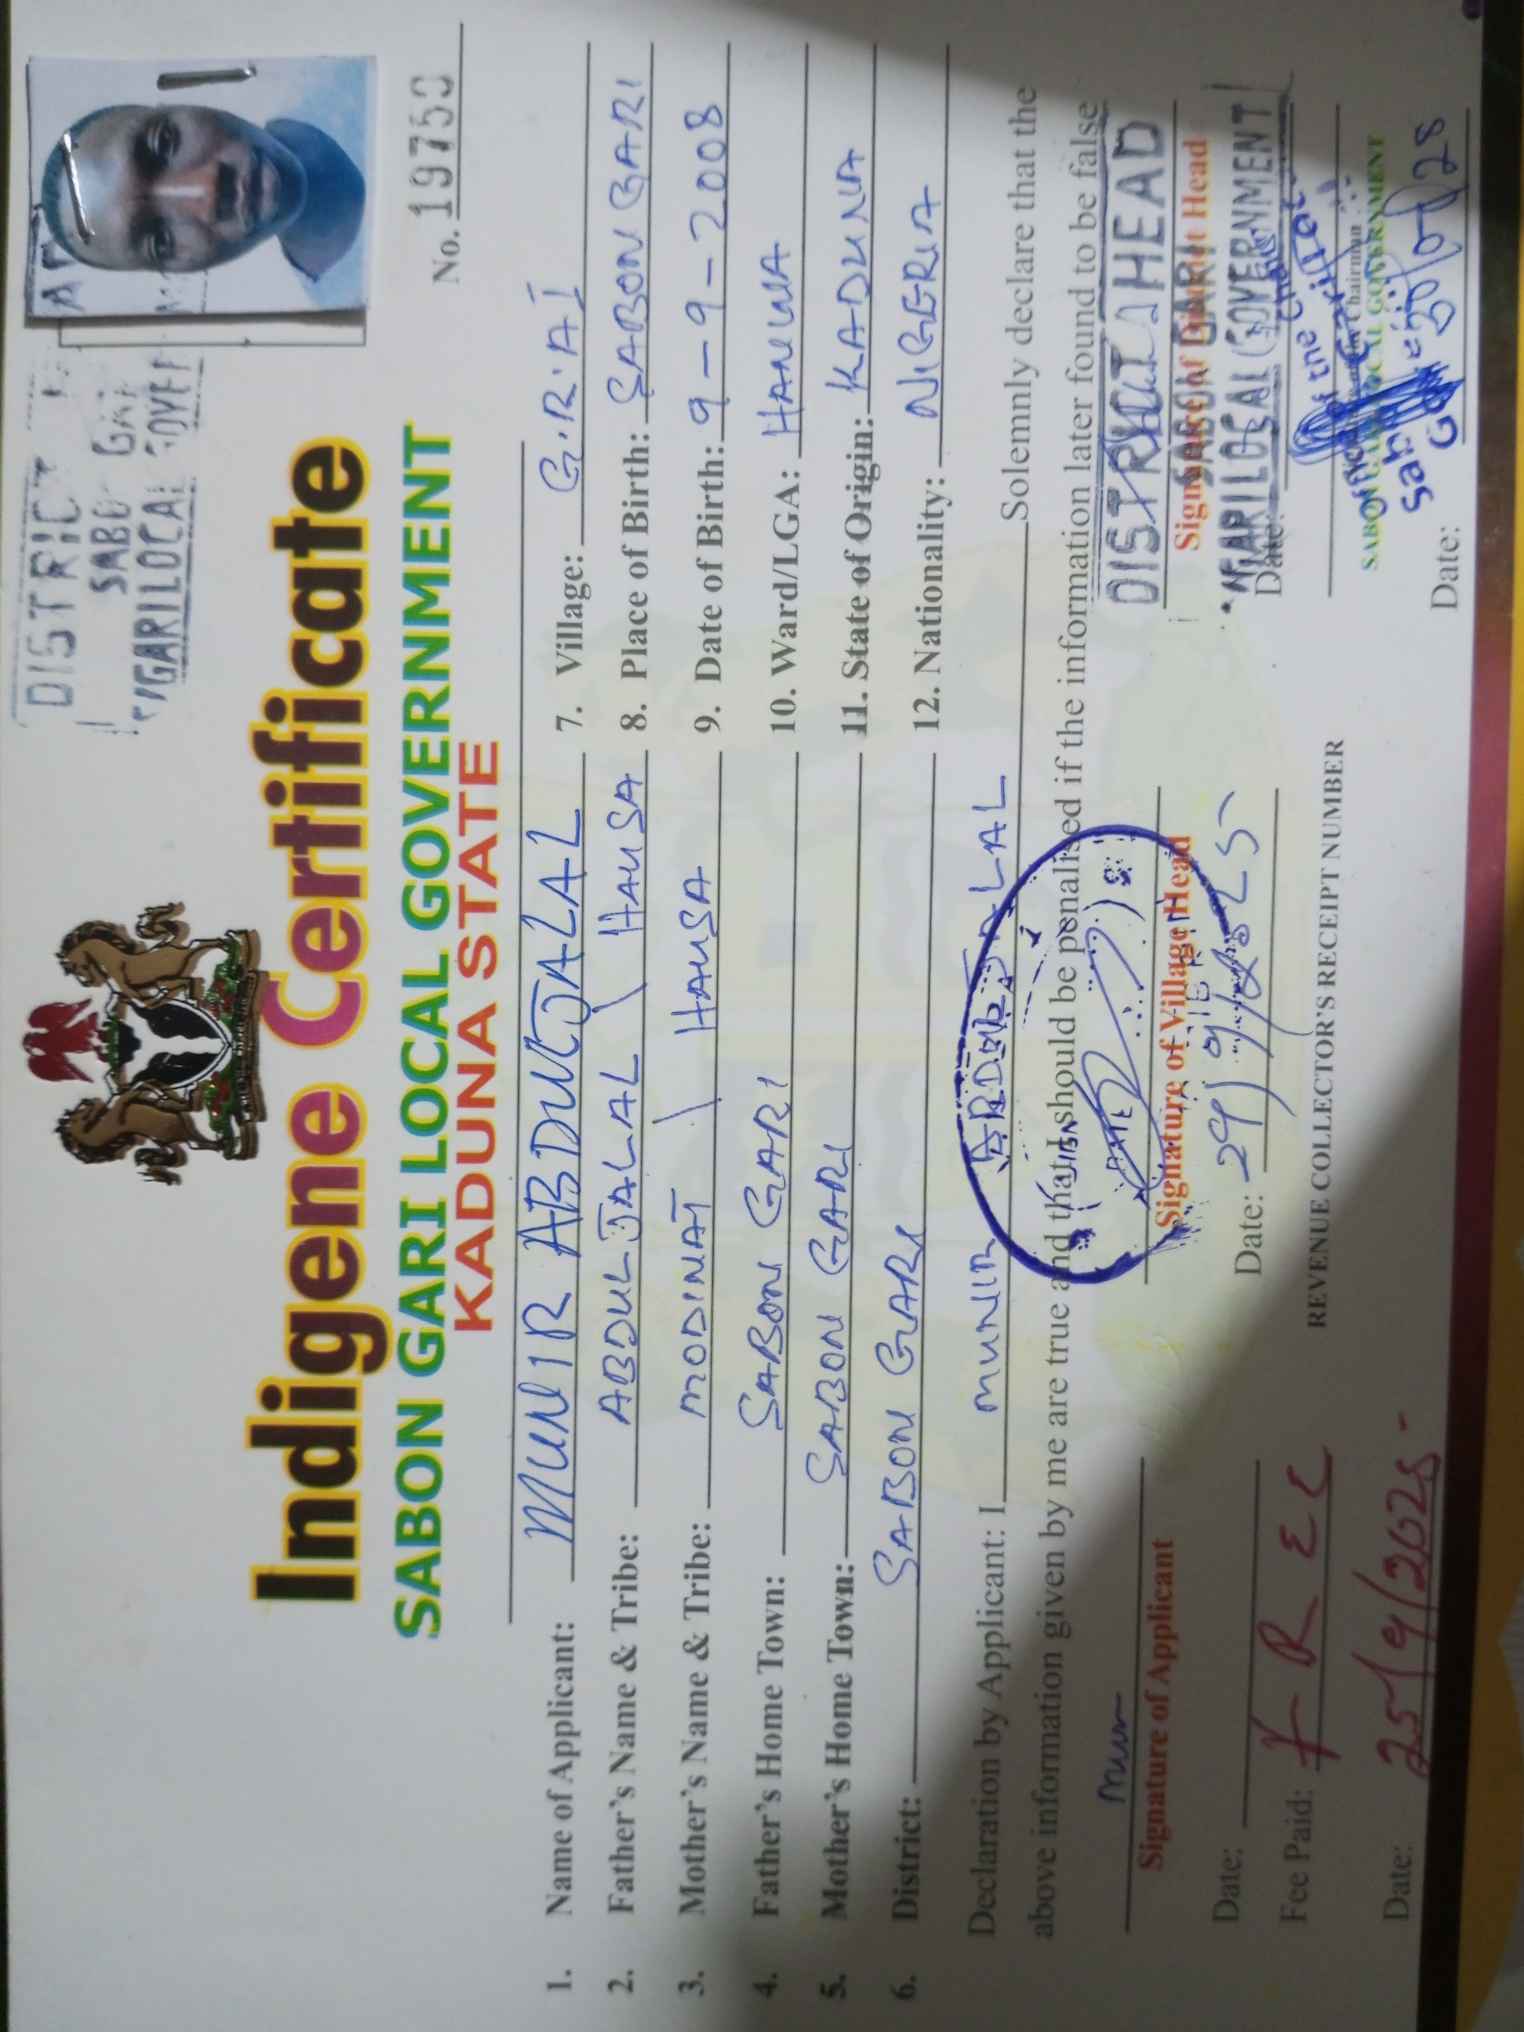 DISTRICT
SABO GAR
GARILOCAL GOVE
Indigene Certificate
SABON GARI LOCAL GOVERNMENT
KADUNA STATE
No. 19753
1. Name of Applicant: MUNIR ABDULJALAL 7. Village: G.R.A
2. Father's Name & Tribe: ABDULJALAL \ HAUSA 8. Place of Birth: SABON GARI
3. Mother's Name & Tribe: MODINAT \ HAUSA 9. Date of Birth: 9-9-2008
4. Father's Home Town: SABON GARI 10. Ward/LGA: HANWA
5. Mother's Home Town: SABON GARI 11. State of Origin: KADUNA
6. District: SABON GARI 12. Nationality: NIGERIA
Declaration by Applicant: I MUNIR ABDULJALAL Solemnly declare that the
above information given by me are true and that I should be penalised if the information later found to be false
Mun
DISTRICT HEAD
Signature of Applicant Signature of Village Head Signature of District Head
SABON GARI
GARI LOCAL GOVERNMENT
Date: Date: 29/9/2025 Date:
Fee Paid: FREE REVENUE COLLECTOR'S RECEIPT NUMBER
Chairman
SABON GARI LOCAL GOVERNMENT
Date: 25/9/2025 Date: